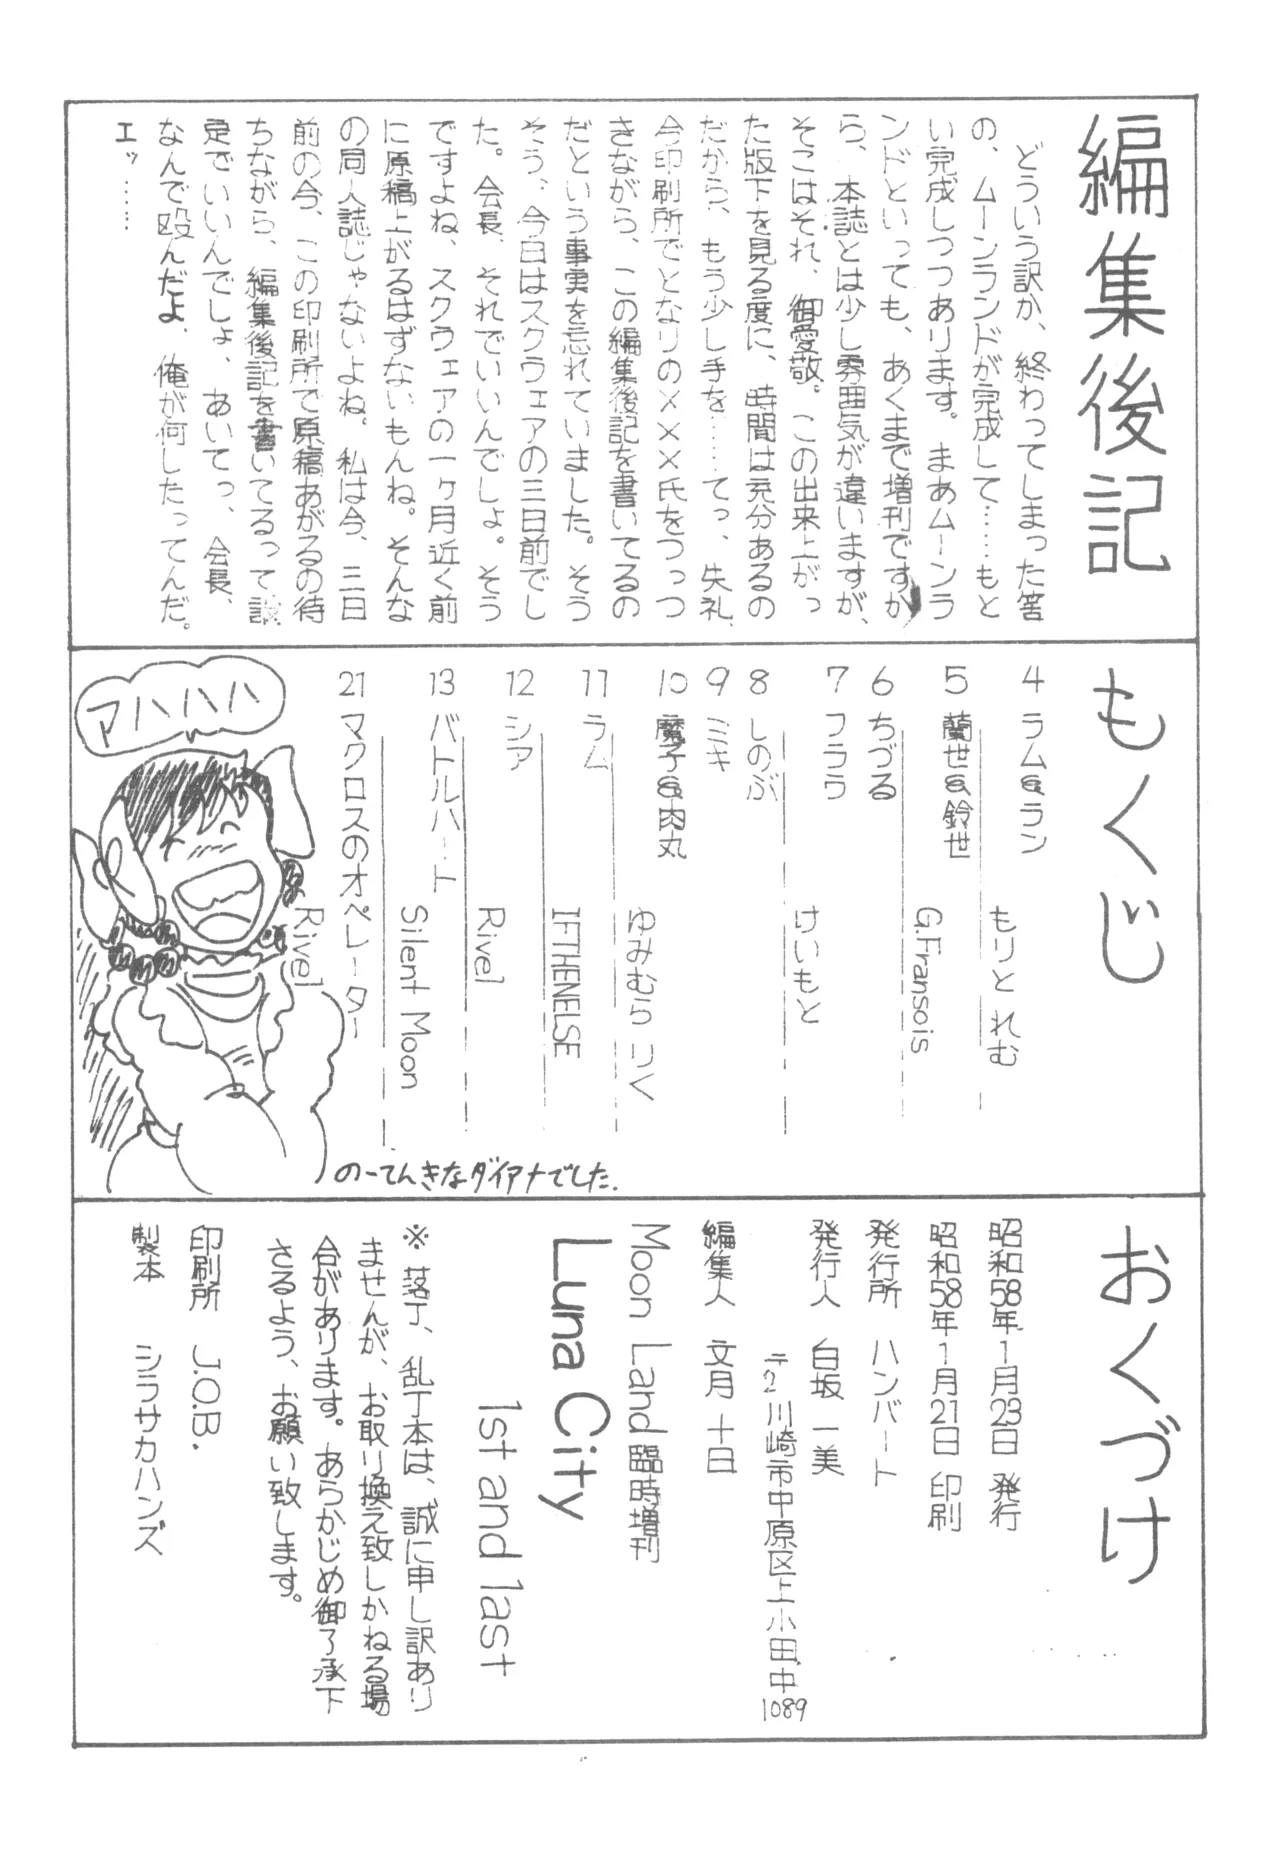 編集後記
どういう訳か、終わってしまった筈
の、ムーンランドが完成して……もと
い完成しつつあります。まあムーンラ
ンドといっても、あくまで増刊ですか
ら、本誌とは少し雰囲気が違いますが、
そこはそれ、御愛敬。この出来上がっ
た版下を見る度に、時間は充分あるの
だから、もう少し手を……てっ、失礼、
今印刷所でとなりの×××氏をつっつ
きながら、この編集後記を書いてるの
だという事実を忘れていました。そう
そう、今日はスクウェアの三日前でし
た。会長、それでいいんでしょ。そう
ですよね、スクウェアの一ヶ月近く前
に原稿上がるはずないもんね。そんな
の同人誌じゃないよね。私は今、三日
前の今、この印刷所で原稿あがるの待
ちながら、編集後記を書いてるって設
定でいいんでしょ、あいてっ、会長、
なんで殴んだよ、俺が何したってんだ。
エッ……
もくじ
4 ラム&ラン
もりと れむ
5 蘭世&鈴世
G.Fransois
6 ちづる
7 フラウ
けいもと
8 しのぶ
9 ミキ
10 魔子&肉丸
ゆみむら りく
11 ラム
IFTHENELSE
12 シア
Rivel
13 バトルハート
Silent Moon
21 マクロスのオペレーター
Rivel
アハハハ
のーてんきなダイアナでした.
おくづけ
昭和58年1月23日 発行
昭和58年1月21日 印刷
発行所 ハンバート
発行人 白坂 一美
〒2 川崎市中原区上小田中
1089
編集人 文月 十日
Moon Land 臨時増刊
Luna City
1st and last
※ 落丁、乱丁本は、誠に申し訳あり
ませんが、お取り換え致しかねる場
合があります。あらかじめ御了承下
さるよう、お願い致します。
印刷所 J.O.B.
製本 シラサカハンズ